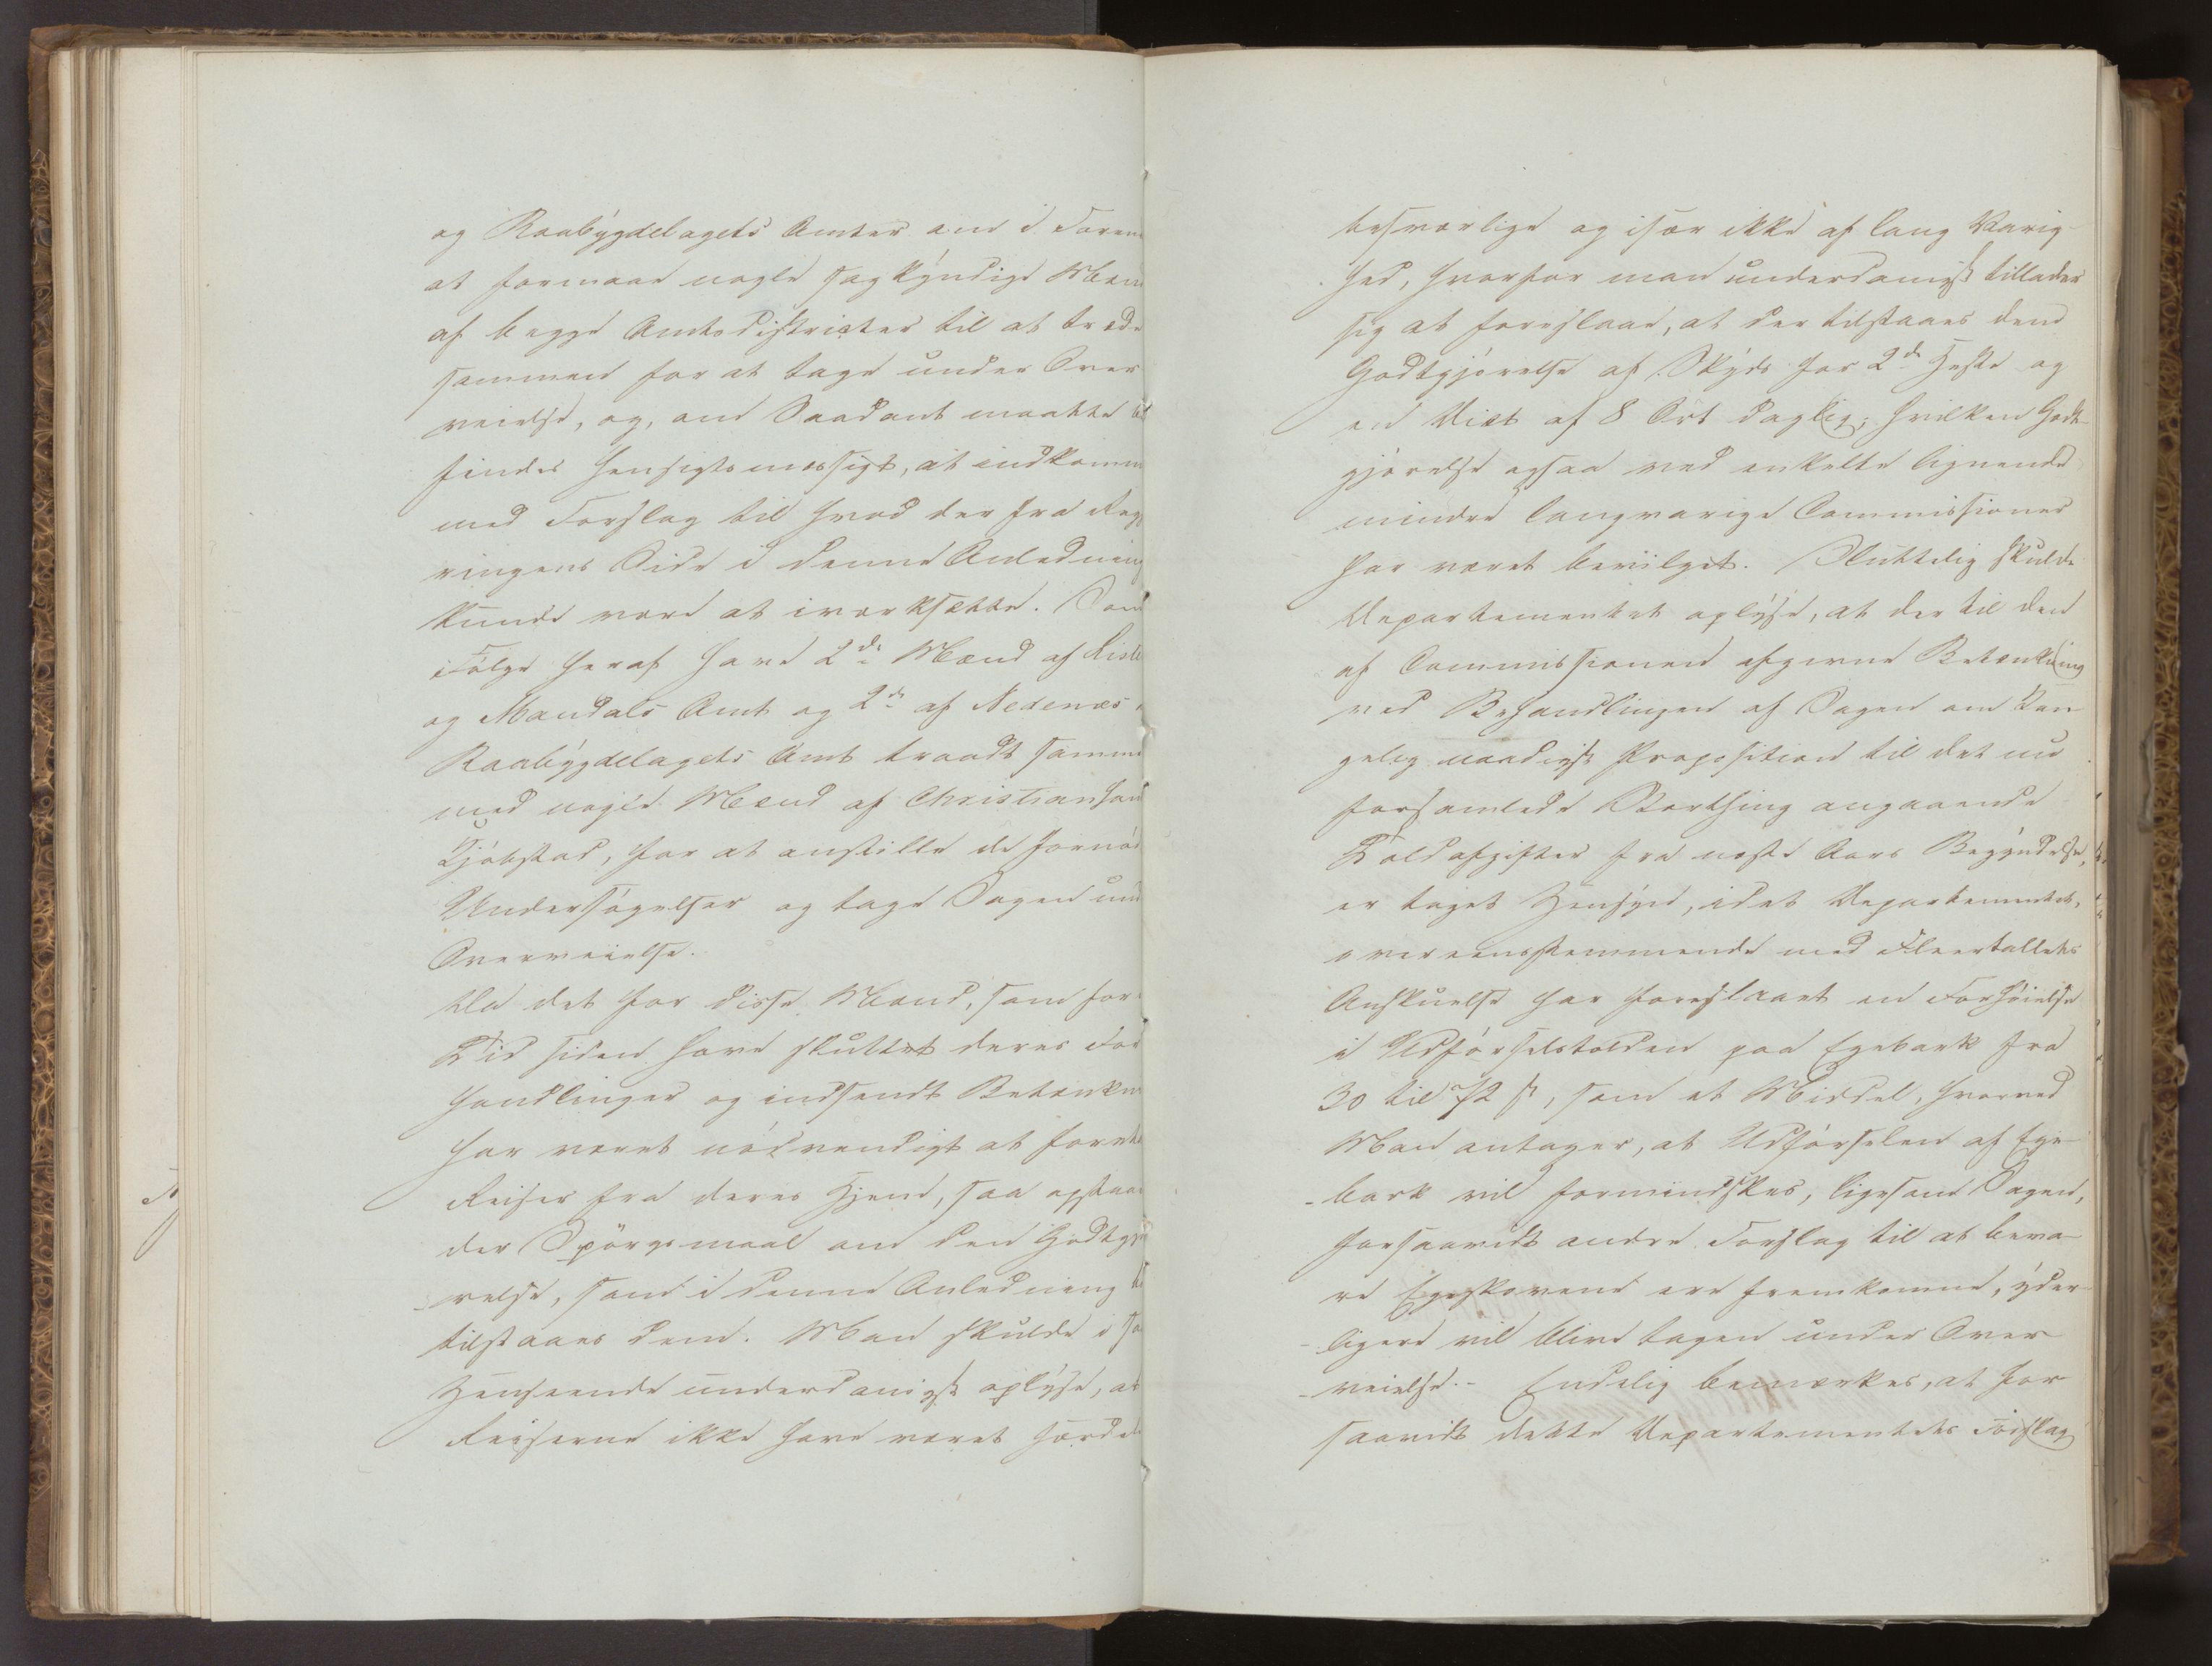 og Raabygdelagets Amter om i Foren
at formaae nogle sagkyndige Mæn
af begge Amtsdistricter til at træde
sammen for at tage under Over
veielse, og, om Saadant maatte be
findes hensigtsmæssigt, at indkomm
med Forslag til hvad der fra Reg
ringens Side i denne Anledning
kunde være at iværksætte. Som
Følge heraf have 2de Mænd af Liste
og Mandals Amt og 2de af Nedenæs
Raabygdelagets Amt traadt samme
med nogle Mænd af Christiansan
Kjøbstad, for at anstille de fornød
Undersøgelser og tage Sagen und
Overveielse.
Da det for disse Mænd, som for
Tid siden have sluttet deres For
handlinger og indsendt Betænkn
har været nødvendigt at foreta
Reiser fra deres Hjem, saa opstaa
der Spörgsmaal om den Godtgjö
relse, som i denne Anledning
tilstaaes dem. Man skulde i sa
Henseende underdanigst oplyse, at
Reiserne ikke have været særdel
besværlige og især ikke af lang Varig-
hed, hvorfor man underdanigst tillader
sig at foreslaae, at der tilstaaes dem
Godtgjörelse af Skyds for 2de Heste og
en Diæt af 8 Ort daglig; hvilken Godt-
gjörelse ogsaa ved enkelte lignende
mindre langvarige Commissioner
har været bevilget. Sluttelig skulde
Departementet oplyse, at der til den
af Commissionen afgivne Betænkning
ved Behandlingen af Sagen om kon
gelig naadigst Proposition til det nu
forsamlede Storthing angaaende
Toldafgifter fra næste Aars Begyndelse,
er taget Hensyn, idet Departementet,
overeensstemmende med Fleertallets
Anskuelse har foreslaaet en Forhöielse
i Udförselstolden paa Egebark fra
30 til 72 ß, som et Middel, hvorved
Man antager, at Udförselen af Ege-
bark vil formindskes, ligesom Sagen,
forsaavidt andre Forslag til at beva-
re Egeskovene ere fremkomne, yder-
ligere vil blive tagen under Over-
veielse.- Endelig bemærkes, at for
saavidt dette Departementets Forslag